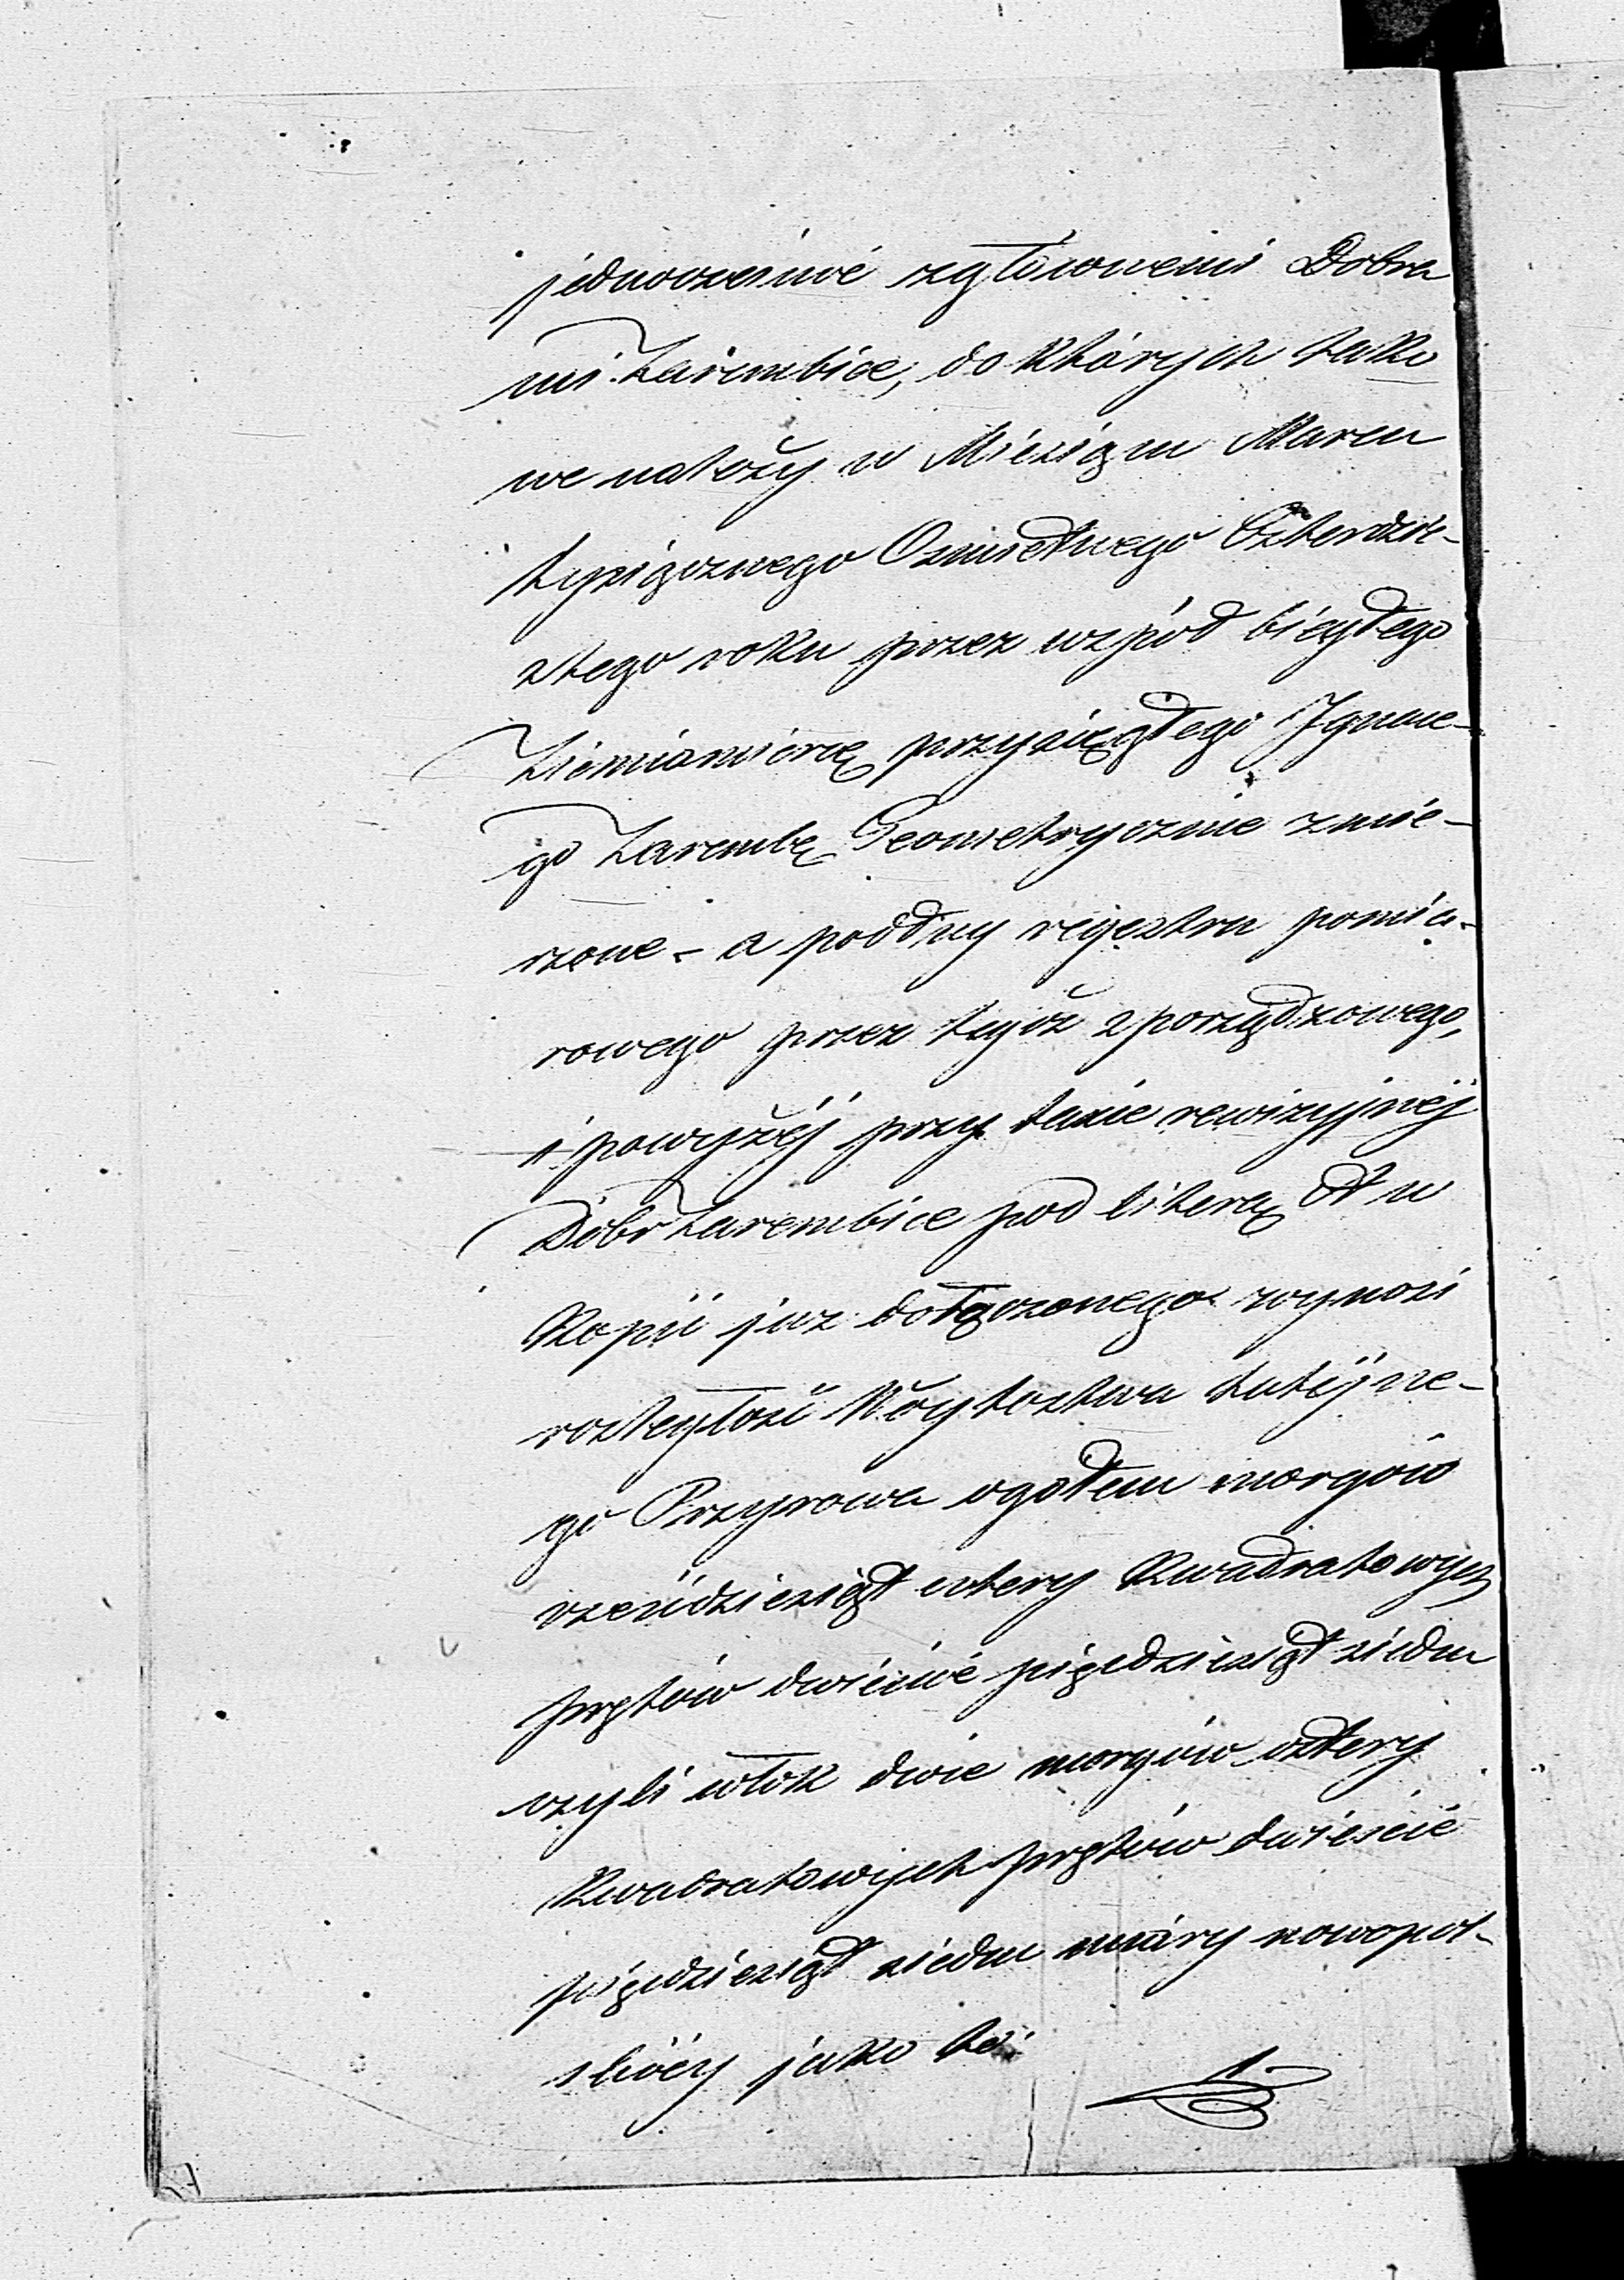 jednocześnie z głównemi Dobra
mi Zarembice, do których tako
we należy w Miesiącu Marcu
tysiącznego Ośmsetnego Czterdzie-
stego roku przez wspód biegłego
Ziemiomierzę przysięgłego Ignace-
go Zarembę Geometrycznie zmie-
rzone - a podług rejestru pomia-
rowego przez tegoż sporządzowego,
i powyżéj przy taxie rewizyjnéj
Dóbr Zarembice pod literą A w
Kopii już dołączonego wynosi
rozległość Wóytostwa tutéjsze-
go Przyrowa ogółem morgów
sześćdziesiąt cztery Kwadratowych
prętów dwieście pięćdziesiąt siedm
czyli włók dwie morgów cztery
Kwadratowych prętów dwieście
pięćdziesiąt siedm miary nowopol-
skiéy jako to: